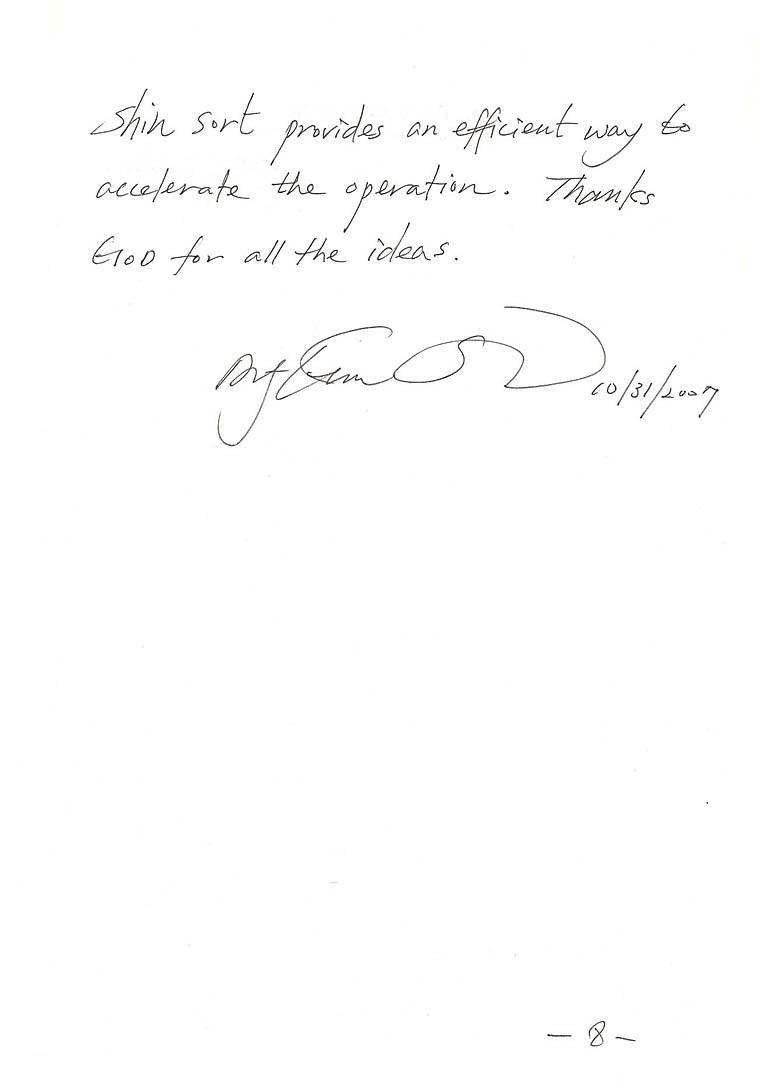 Shin sort provides an efficient way to
accelerate the operation. Thanks
GOD for all the ideas.
10/31/2007
- 8 -